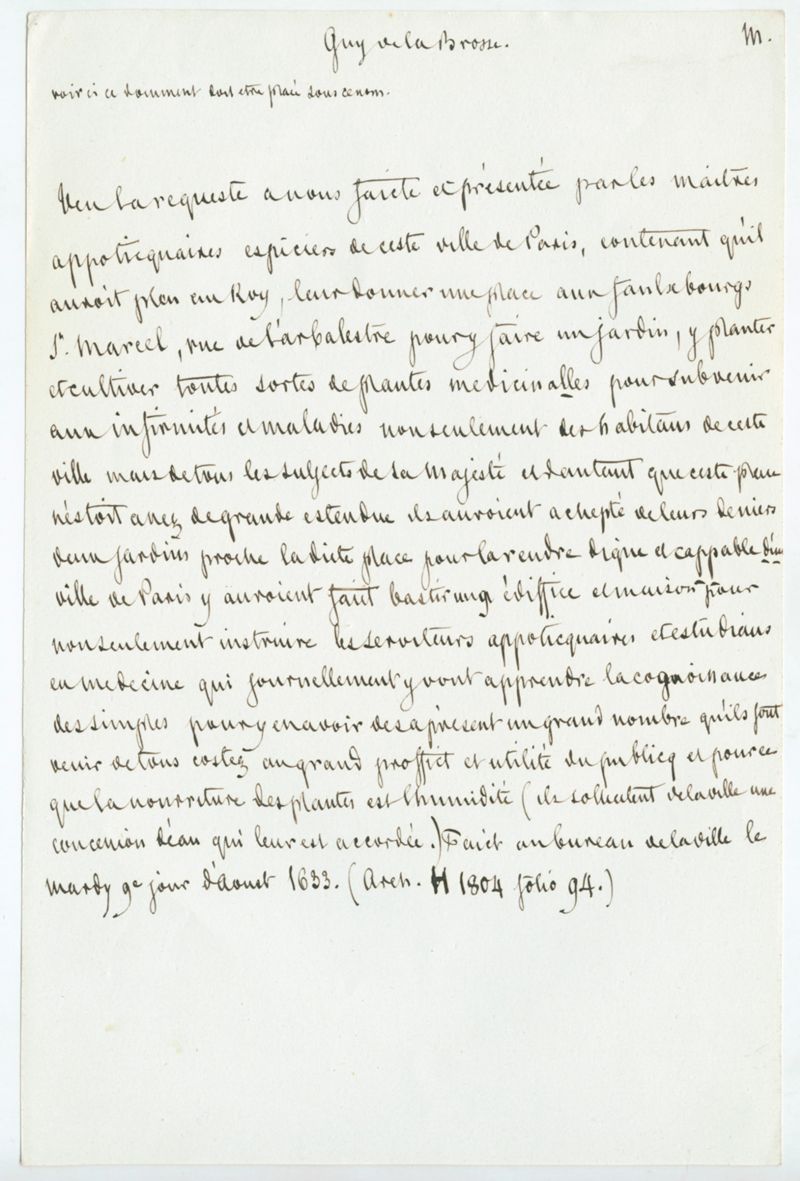 Guy de la Brosse.
M.
voir si ce document doit etre placé sous ce nom.
Veu la requeste a nous faicte et présentée par les maitres
appoticquaires espiciers de ceste ville de Paris, contenant qu'il
auroit pleu au Roy, leur donner une place aux faulxbourgs
St. Marcel, rue de l'arbalestre pour y faire un jardin, y planter
et cultiver toutes sortes de plantes medicinalles pour subvenir
aux infirmités et maladies non seulement des habitans de ceste
ville mais de tous les subjects de sa Majesté et d'autant que ceste place
n'estoit assez de grande estendue ils auroient achepté de leurs deniers
deux jardins proche la dicte place pour la rendre digne et cappable d'une
ville de Paris y auroient faict bastir ung édiffice et maison pour
non seulement instruire les serviteurs appoticquaires et estudians
en medecine qui journellement y vont apprendre la cognoissance
des simples pour y en avoir des a présent un grand nombre qu'ils font
venir de tous costez au grand proffict et utilité du publicq et pour ce
que la nourriture des plantes est l'humidité (ils sollicitent de la ville une
concession d'eau qui leur est accordée.) Faict au bureau de la ville le
mardy 9e jour d'Aoust 1633. (Arch. H 1804 folio 94.)